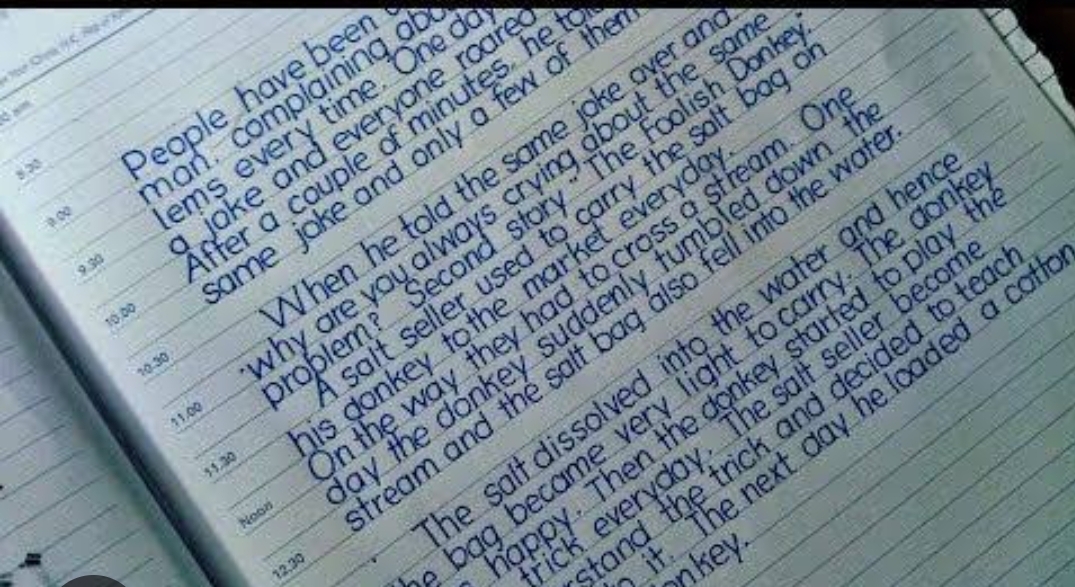 8.30
9.00
9.30
10.00
10.30
11.00
11.30
Noon
12.30
People have been
man, complaining about
lems every time. One day
a joke and everyone roared
After a couple of minutes, he told
same joke and only a few of them
When he told the same joke over and
"why are you always crying about the same
problem? Second story "The Foolish Donkey."
A salt seller used to carry the salt bag on
his donkey to the market everyday.
On the way they had to cross a stream. One
day the donkey suddenly tumbled down the
stream and the salt bag also fell into the water.
The salt dissolved into the water and hence
the bag became very light to carry. The donkey
happy. Then the donkey started to play the
trick everyday. The salt seller become
the trick and decided to teach
it. The next day he loaded a cotton